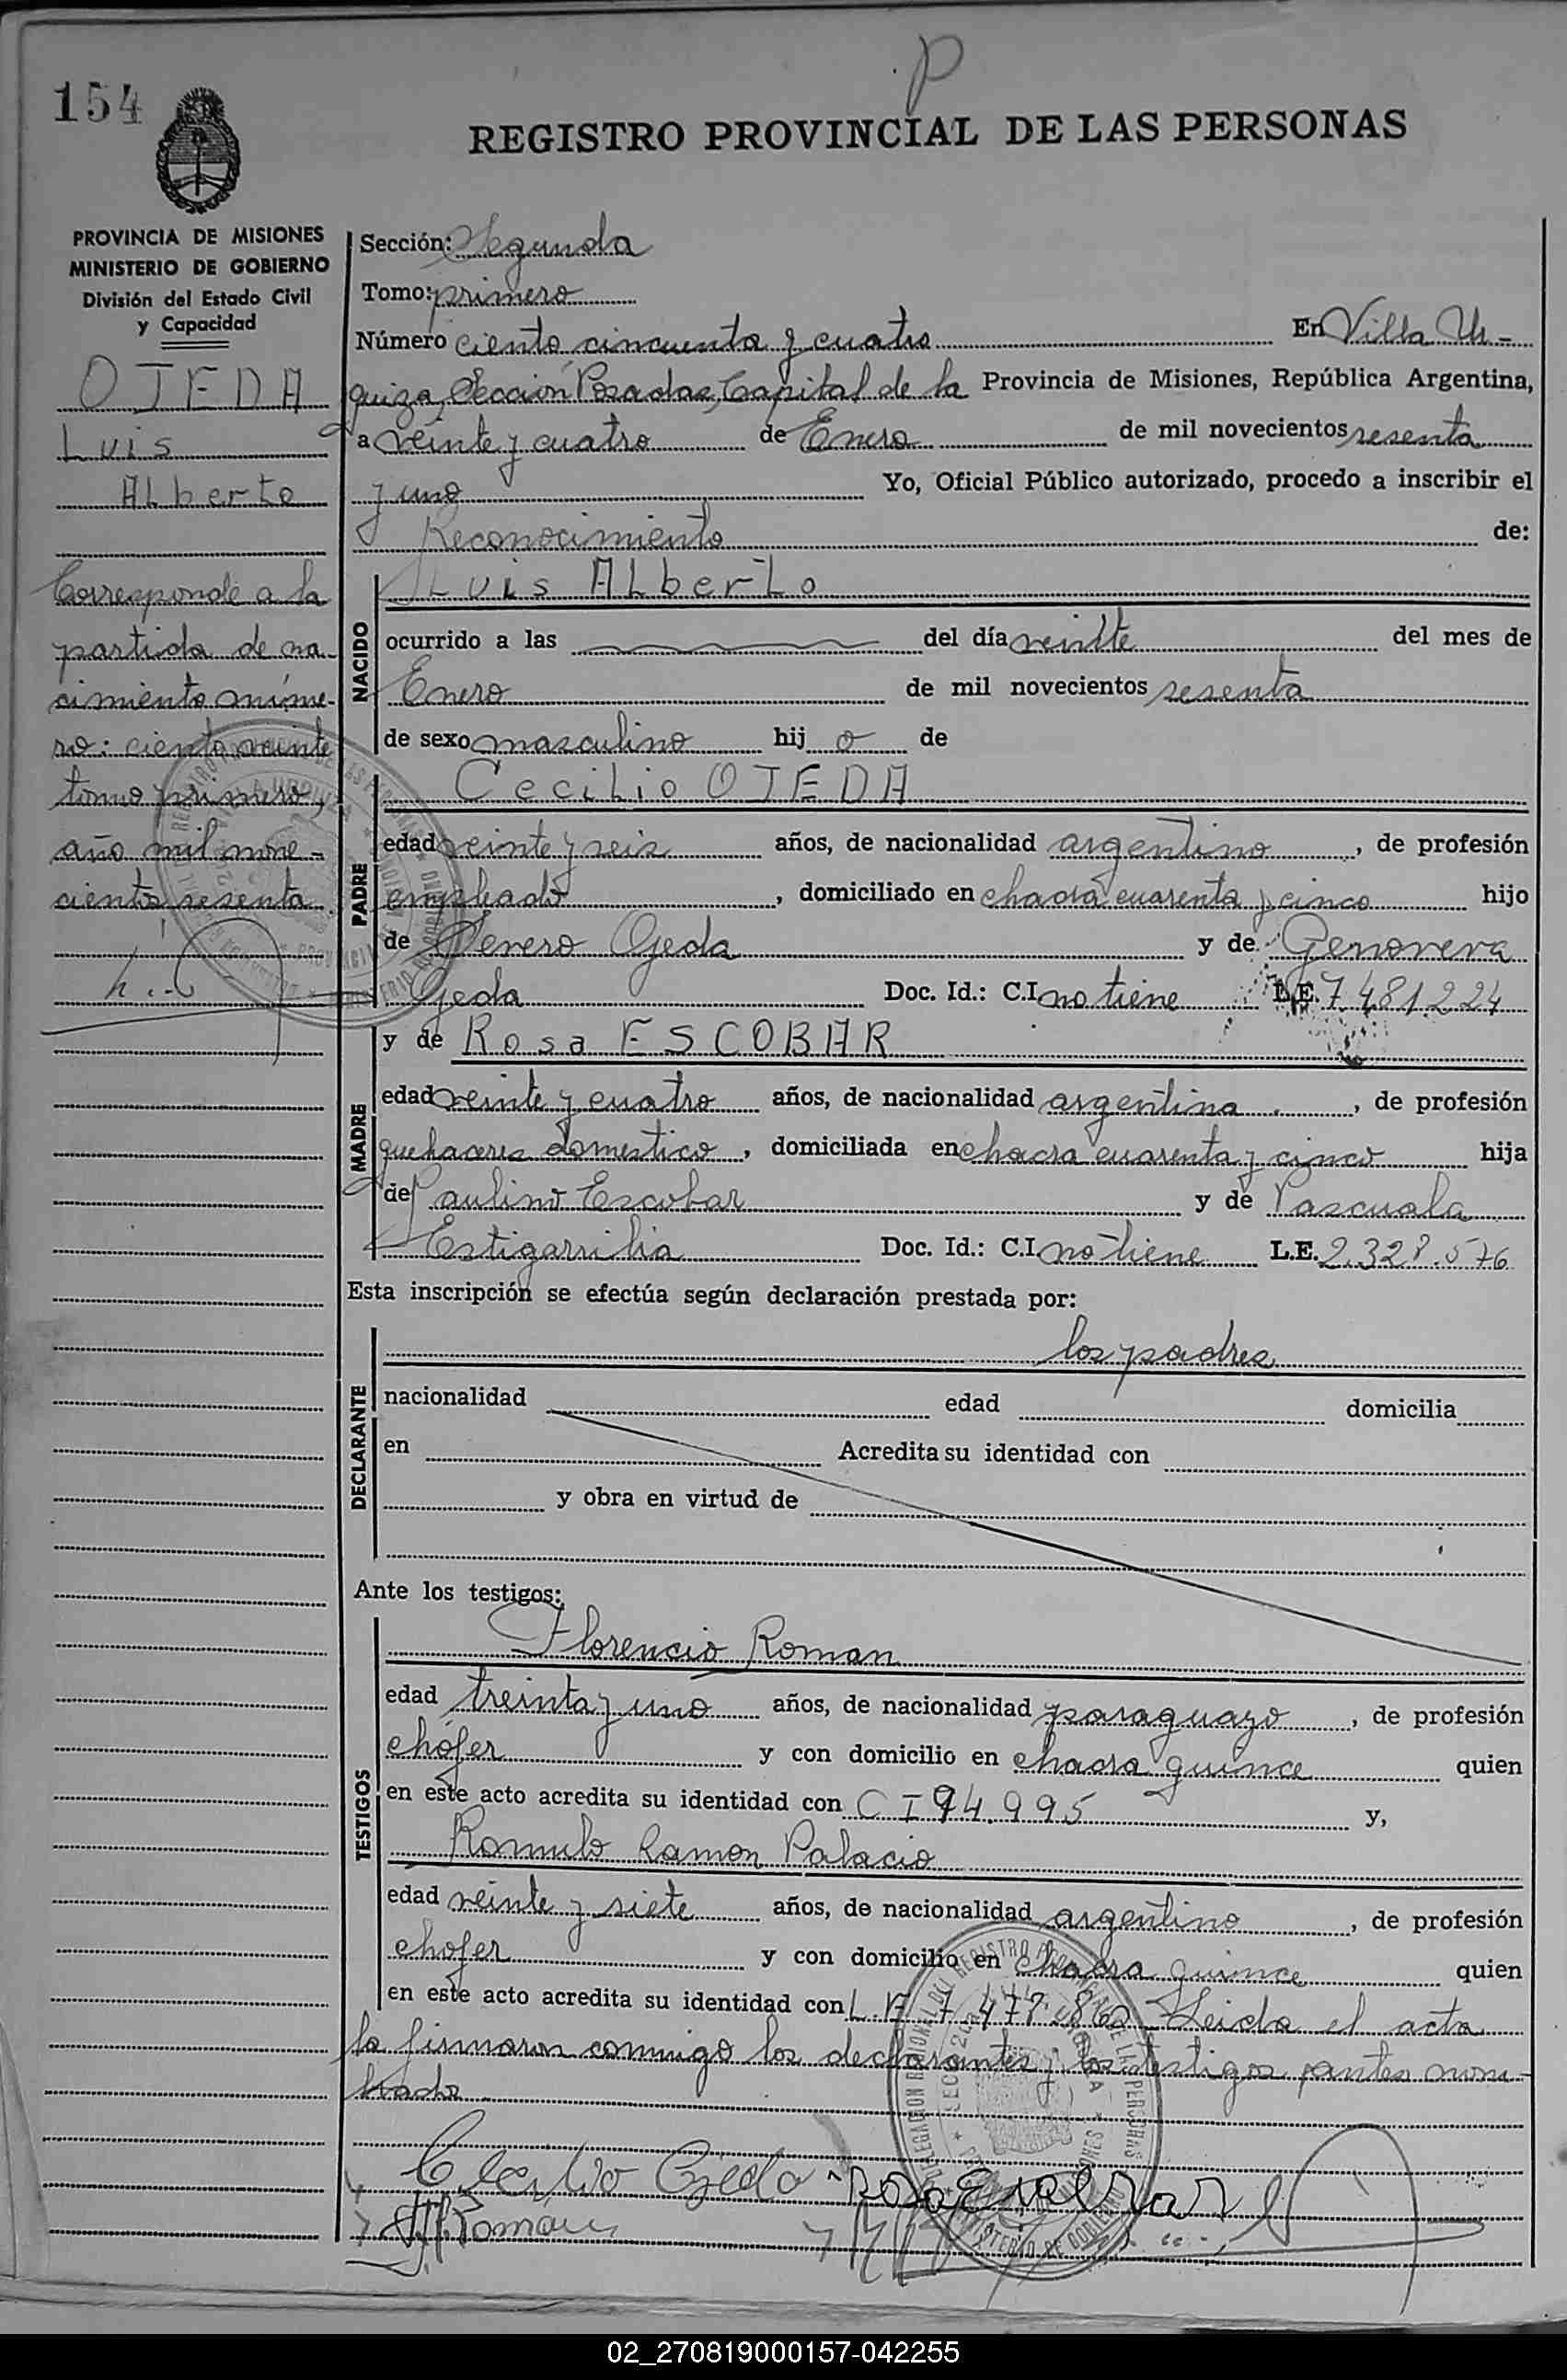 P
154
REGISTRO PROVINCIAL DE LAS PERSONAS
PROVINCIA DE MISIONES
MINISTERIO DE GOBIERNO
División del Estado Civil
y Capacidad
OJEDA
Luis
Alberto
Corresponde a la
partida de na-
cimiento núme-
ro: ciento veinte
tomo primero,
año mil nove-
cientos sesenta
Sección: Segunda
Tomo: primero
Número ciento cincuenta y cuatro En Villa Ur-
quiza, Sección Posadas, Capital de la Provincia de Misiones, República Argentina,
a veinte y cuatro de Enero de mil novecientos sesenta
y uno Yo, Oficial Público autorizado, procedo a inscribir el
Reconocimiento de:
NACIDO
Luis ALberto
ocurrido a las del día veintte del mes de
Enero de mil novecientos sesenta
de sexo masculino hij o de
PADRE
Cecilio OJEDA
edad veinte y seis años, de nacionalidad argentino, de profesión
empleado, domiciliado en chacra cuarenta y cinco hijo
de Severo Ojeda y de Genoveva
Ojeda Doc. Id.: C.I. no tiene L.E. 7.481.224
MADRE
y de Rosa ESCOBAR
edad veinte y cuatro años, de nacionalidad argentina, de profesión
quehaceres domestico, domiciliada en chacra cuarenta y cinco hija
de Paulino Escobar y de Pascuala
Estigarribia Doc. Id.: C.I. no tiene L.E. 2.328.576
Esta inscripción se efectúa según declaración prestada por:
DECLARANTE
los padres
nacionalidad edad domicilia
en Acredita su identidad con
y obra en virtud de
Ante los testigos:
TESTIGOS
Florencio Roman
edad treinta y uno años, de nacionalidad paraguayo, de profesión
chófer y con domicilio en chacra quince quien
en este acto acredita su identidad con C I 94.995 y,
Romulo Ramon Palacio
edad veinte y siete años, de nacionalidad argentino, de profesión
chofer y con domicilio en chacra quince quien
en este acto acredita su identidad con L.E 7.478.862 Leida el acta
la firmaron conmigo los declarantes y los testigos pantes nom-
brado
Cecilio Ojeda Rosa Escobar
Roman
02_270819000157-042255